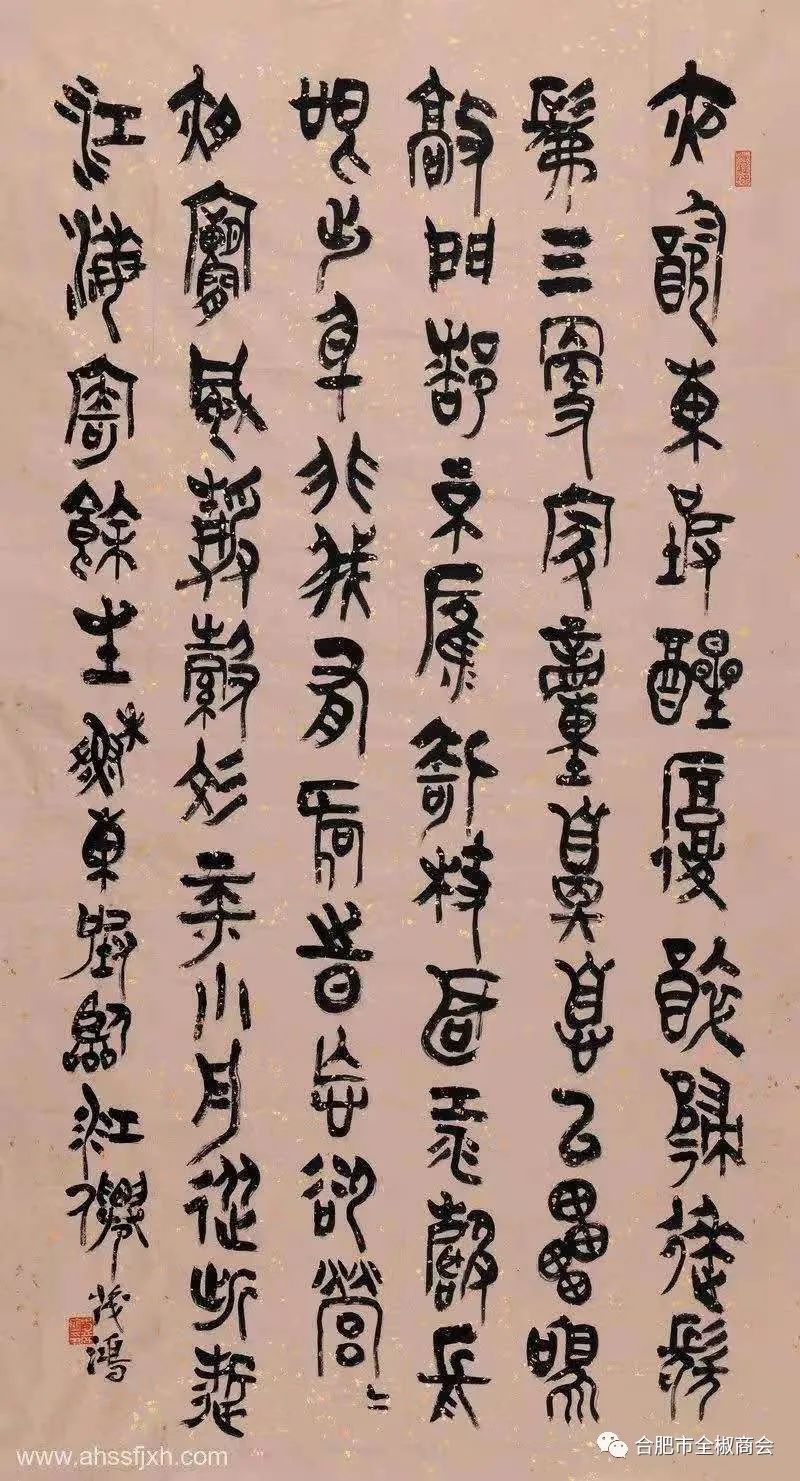 夜飲東坡醒復醉歸來髣
髴三更家童鼻息已雷鳴
敲門都不應倚杖聽江聲長
恨此身非我有何時忘卻營營
夜闌風靜縠紋平小舟從此逝
江海寄餘生 蘇東坡臨江仙 茂鴻
www.ahssfjxh.com
合肥市全椒商会